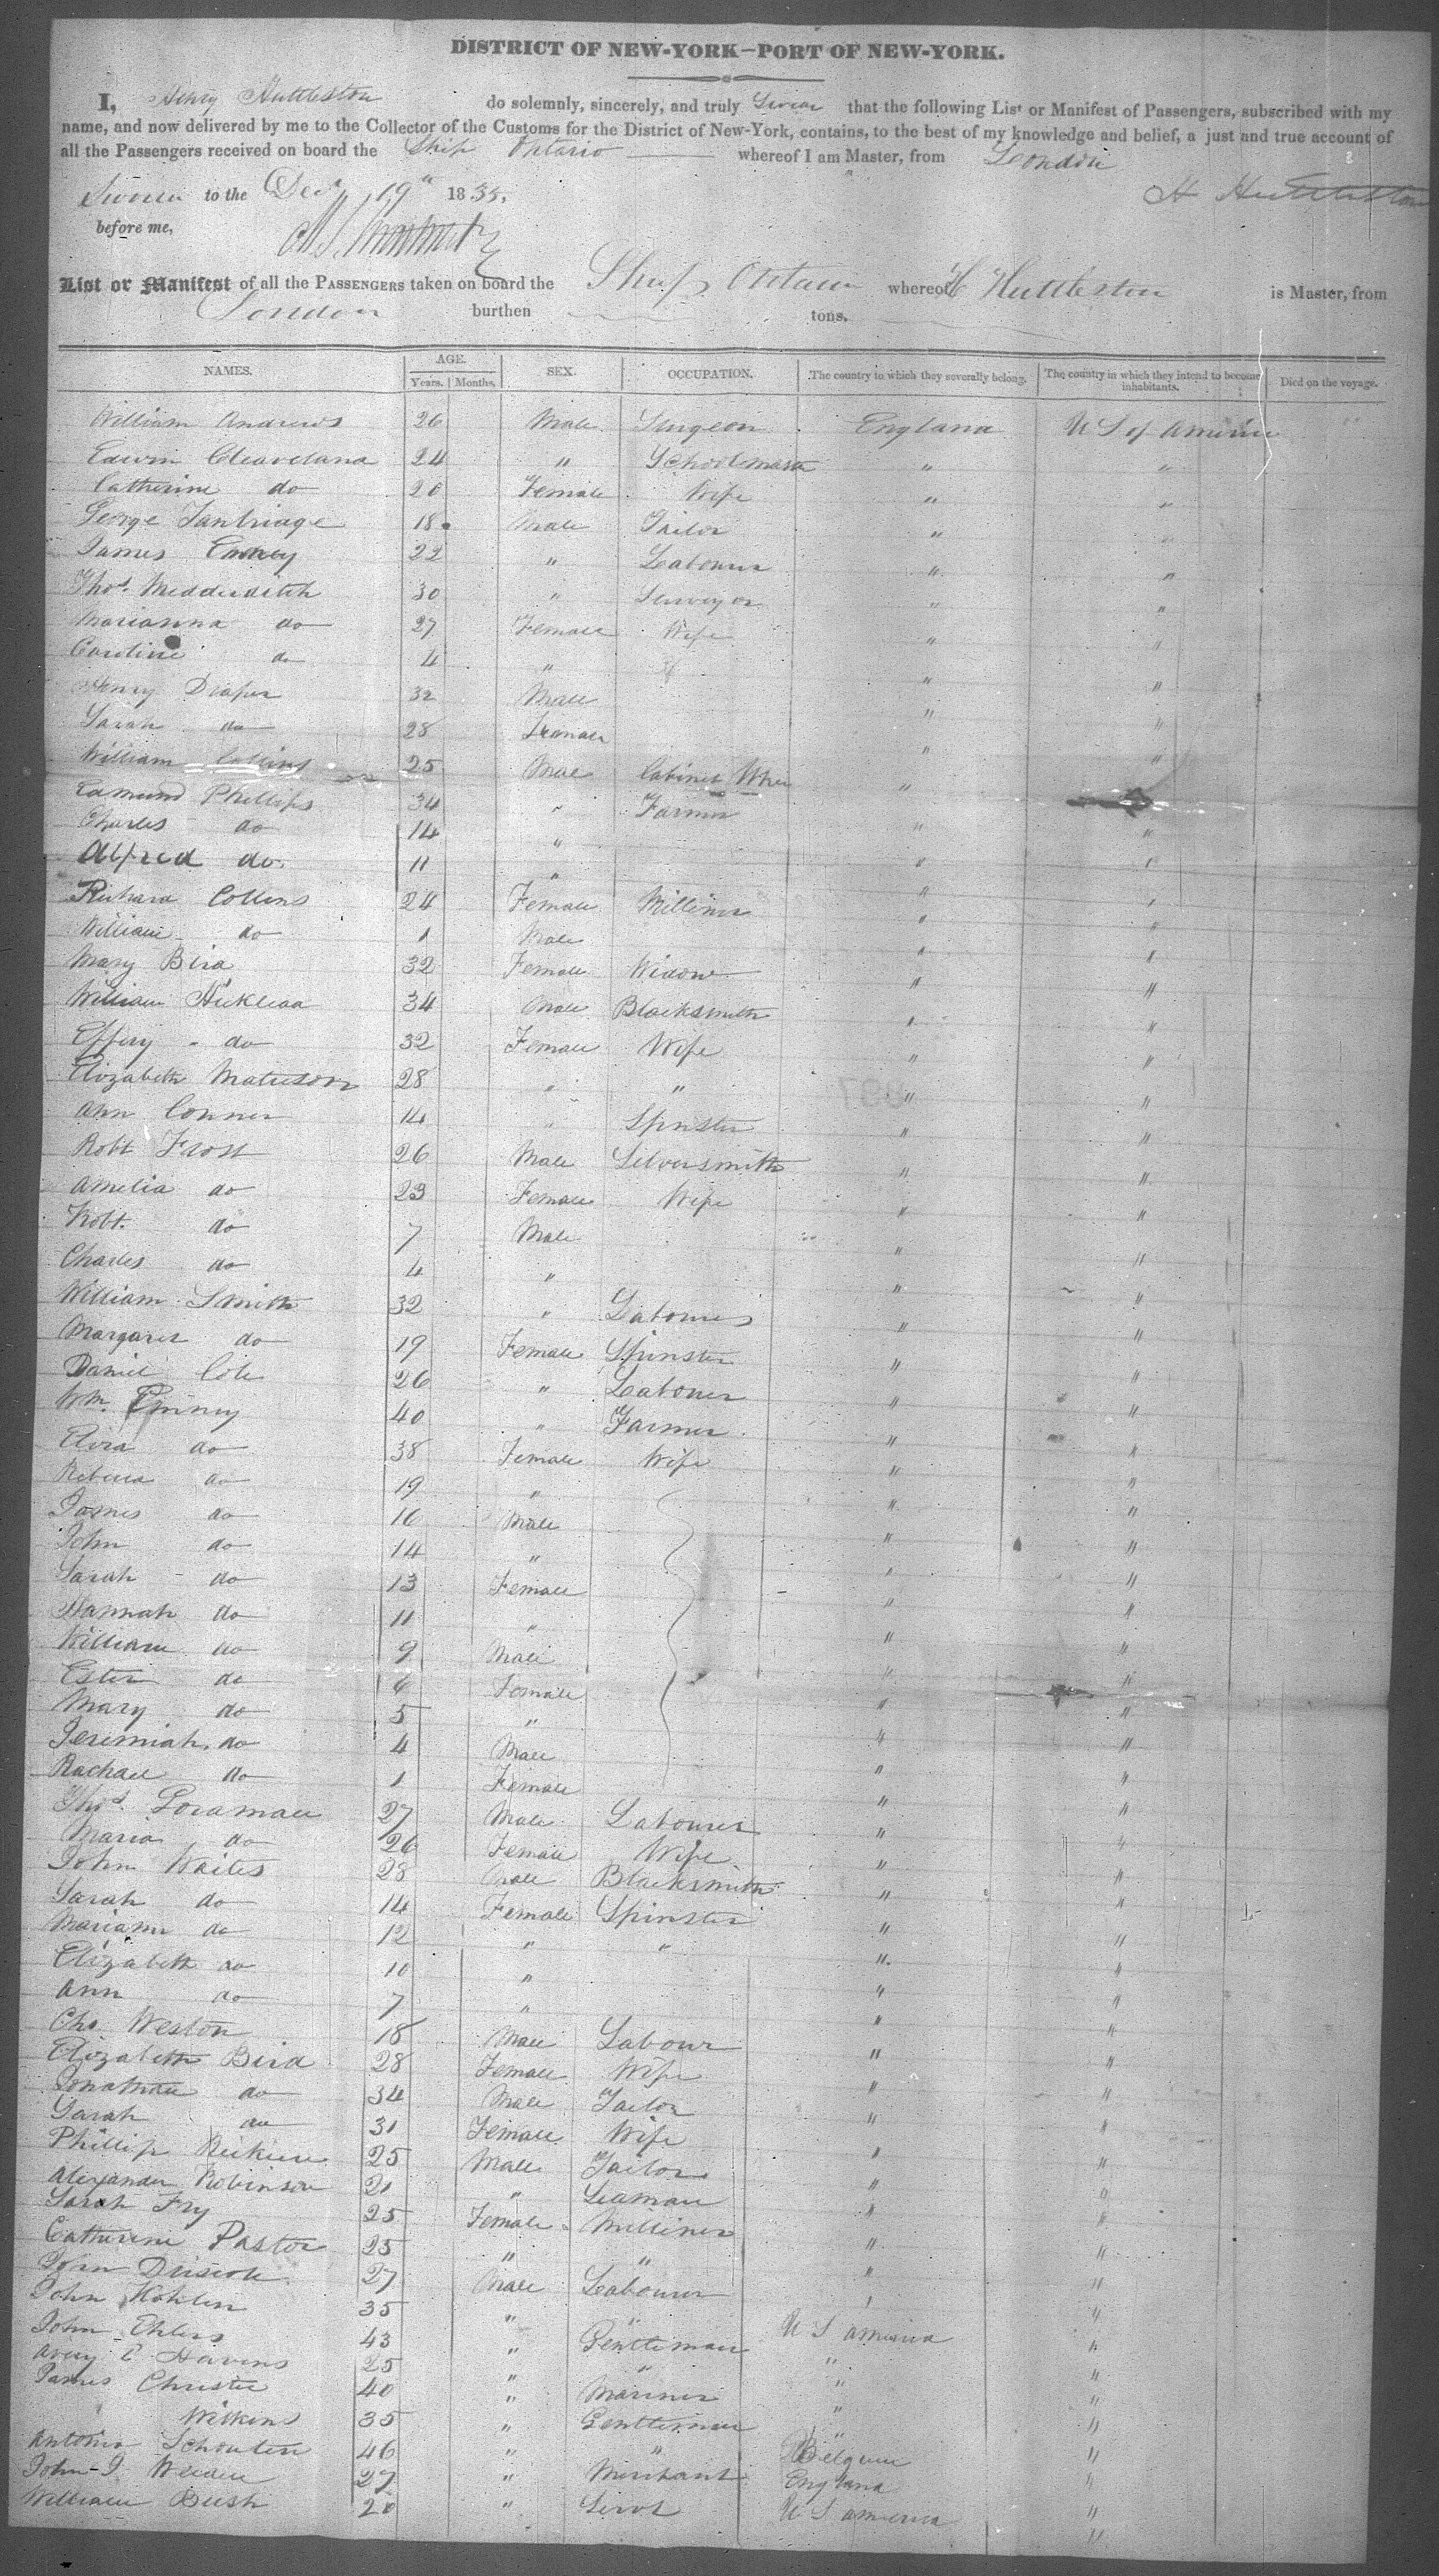 DISTRICT OF NEW-YORK—PORT OF NEW-YORK.
I, Henry Huttleston do solemnly, sincerely, and truly Swear that the following List or Manifest of Passengers, subscribed with my
name, and now delivered by me to the Collector of the Customs for the District of New-York, contains, to the best of my knowledge and belief, a just and true account of
all the Passengers received on board the Ship Ontario whereof I am Master, from London
Sworn to the Decr 19th 1835. H Huttleston
before me,
List or Manifest of all the PASSENGERS taken on board the Ship Ontario whereof H Huttleston is Master, from
London burthen tons.
NAMES. AGE. SEX. OCCUPATION. The country to which they severally belong. The country in which they intend to become inhabitants. Died on the voyage.
Years. Months.
William Andrews 26 Male Surgeon England U S of America
Edwin Cleaveland 24 " Schoolmaster " "
Catherine do 20 Female Wife " "
George 18 Male Tailor " "
James 22 " Labourer " "
Thos. Medderditch 30 " Surveyor " "
Marianna do 27 Female Wife " "
Caroline do 4 " " "
Henry Draper 32 Male " "
Sarah do 28 Female " "
William Collins 25 Male Cabinet Mker "
Edmund Phillips 34 " Farmer " "
Charles do 14 " " "
Alfred do 11 " " "
Richard Collins 24 Female Milliner " "
William do 1 Male " "
Mary Bird 32 Female Widow " "
William 34 Male Blacksmith " "
Effery do 32 Female Wife " "
Elizabeth Matteson 28 " " " "
Ann Conner 14 " Spinster " "
Robt Frost 26 Male Silversmith " "
Amelia do 23 Female Wife " "
Robt. do 7 Male " "
Charles do 4 " " "
William Smith 32 " Labourer " "
Margaret do 19 Female Spinster " "
Daniel Cole 26 " Labourer " "
Wm. Pinney 40 " Farmer " "
do 38 Female Wife " "
Rebecca do 19 " " "
James do 16 Male " "
John do 14 " " "
Sarah do 13 Female " "
Hannah do 11 " " "
William do 9 Male " "
Ester do 6 Female " "
Mary do 5 " " "
Jeremiah do 4 Male " "
Rachael do 1 Female " "
Thos. 27 Male Labourer " "
Maria do 26 Female Wife " "
John Waites 28 Male Blacksmith " "
Sarah do 14 Female Spinster " "
Mariann do 12 " " " "
Elizabeth do 10 " " "
Ann do 7 " " "
Chs Weston 18 Male Labour " "
Elizabeth Bird 28 Female Wife " "
Jonathan do 34 Male Tailor " "
Sarah do 31 Female Wife " "
Phillip 25 Male Tailor " "
Alexander Robinson 21 " Seaman " "
Sarah Fry 25 Female Milliner " "
Catherine Pastor 25 " " " "
John Driscoll 27 Male Labourer " "
John 35 " " " "
John Ehlers 43 " Gentleman U S America "
Avery C Havens 25 " " " "
James Christie 40 " Mariner " "
Wilkins 35 " Gentleman " "
Antonio Schouten 46 " " Belgium "
John J 27 " Merchant England "
William Bush 20 " U S America "